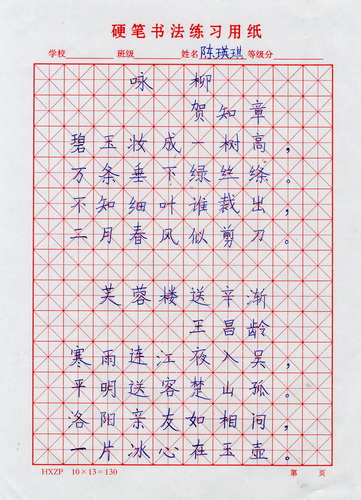 硬笔书法练习用纸
学校 班级 姓名 陈瑛琪 等级分
咏柳
贺知章
碧玉妆成一树高，
万条垂下绿丝绦。
不知细叶谁裁出，
二月春风似剪刀。
芙蓉楼送辛渐
王昌龄
寒雨连江夜入吴，
平明送客楚山孤。
洛阳亲友如相问，
一片冰心在玉壶。
HXZP 10×13=130 第 页